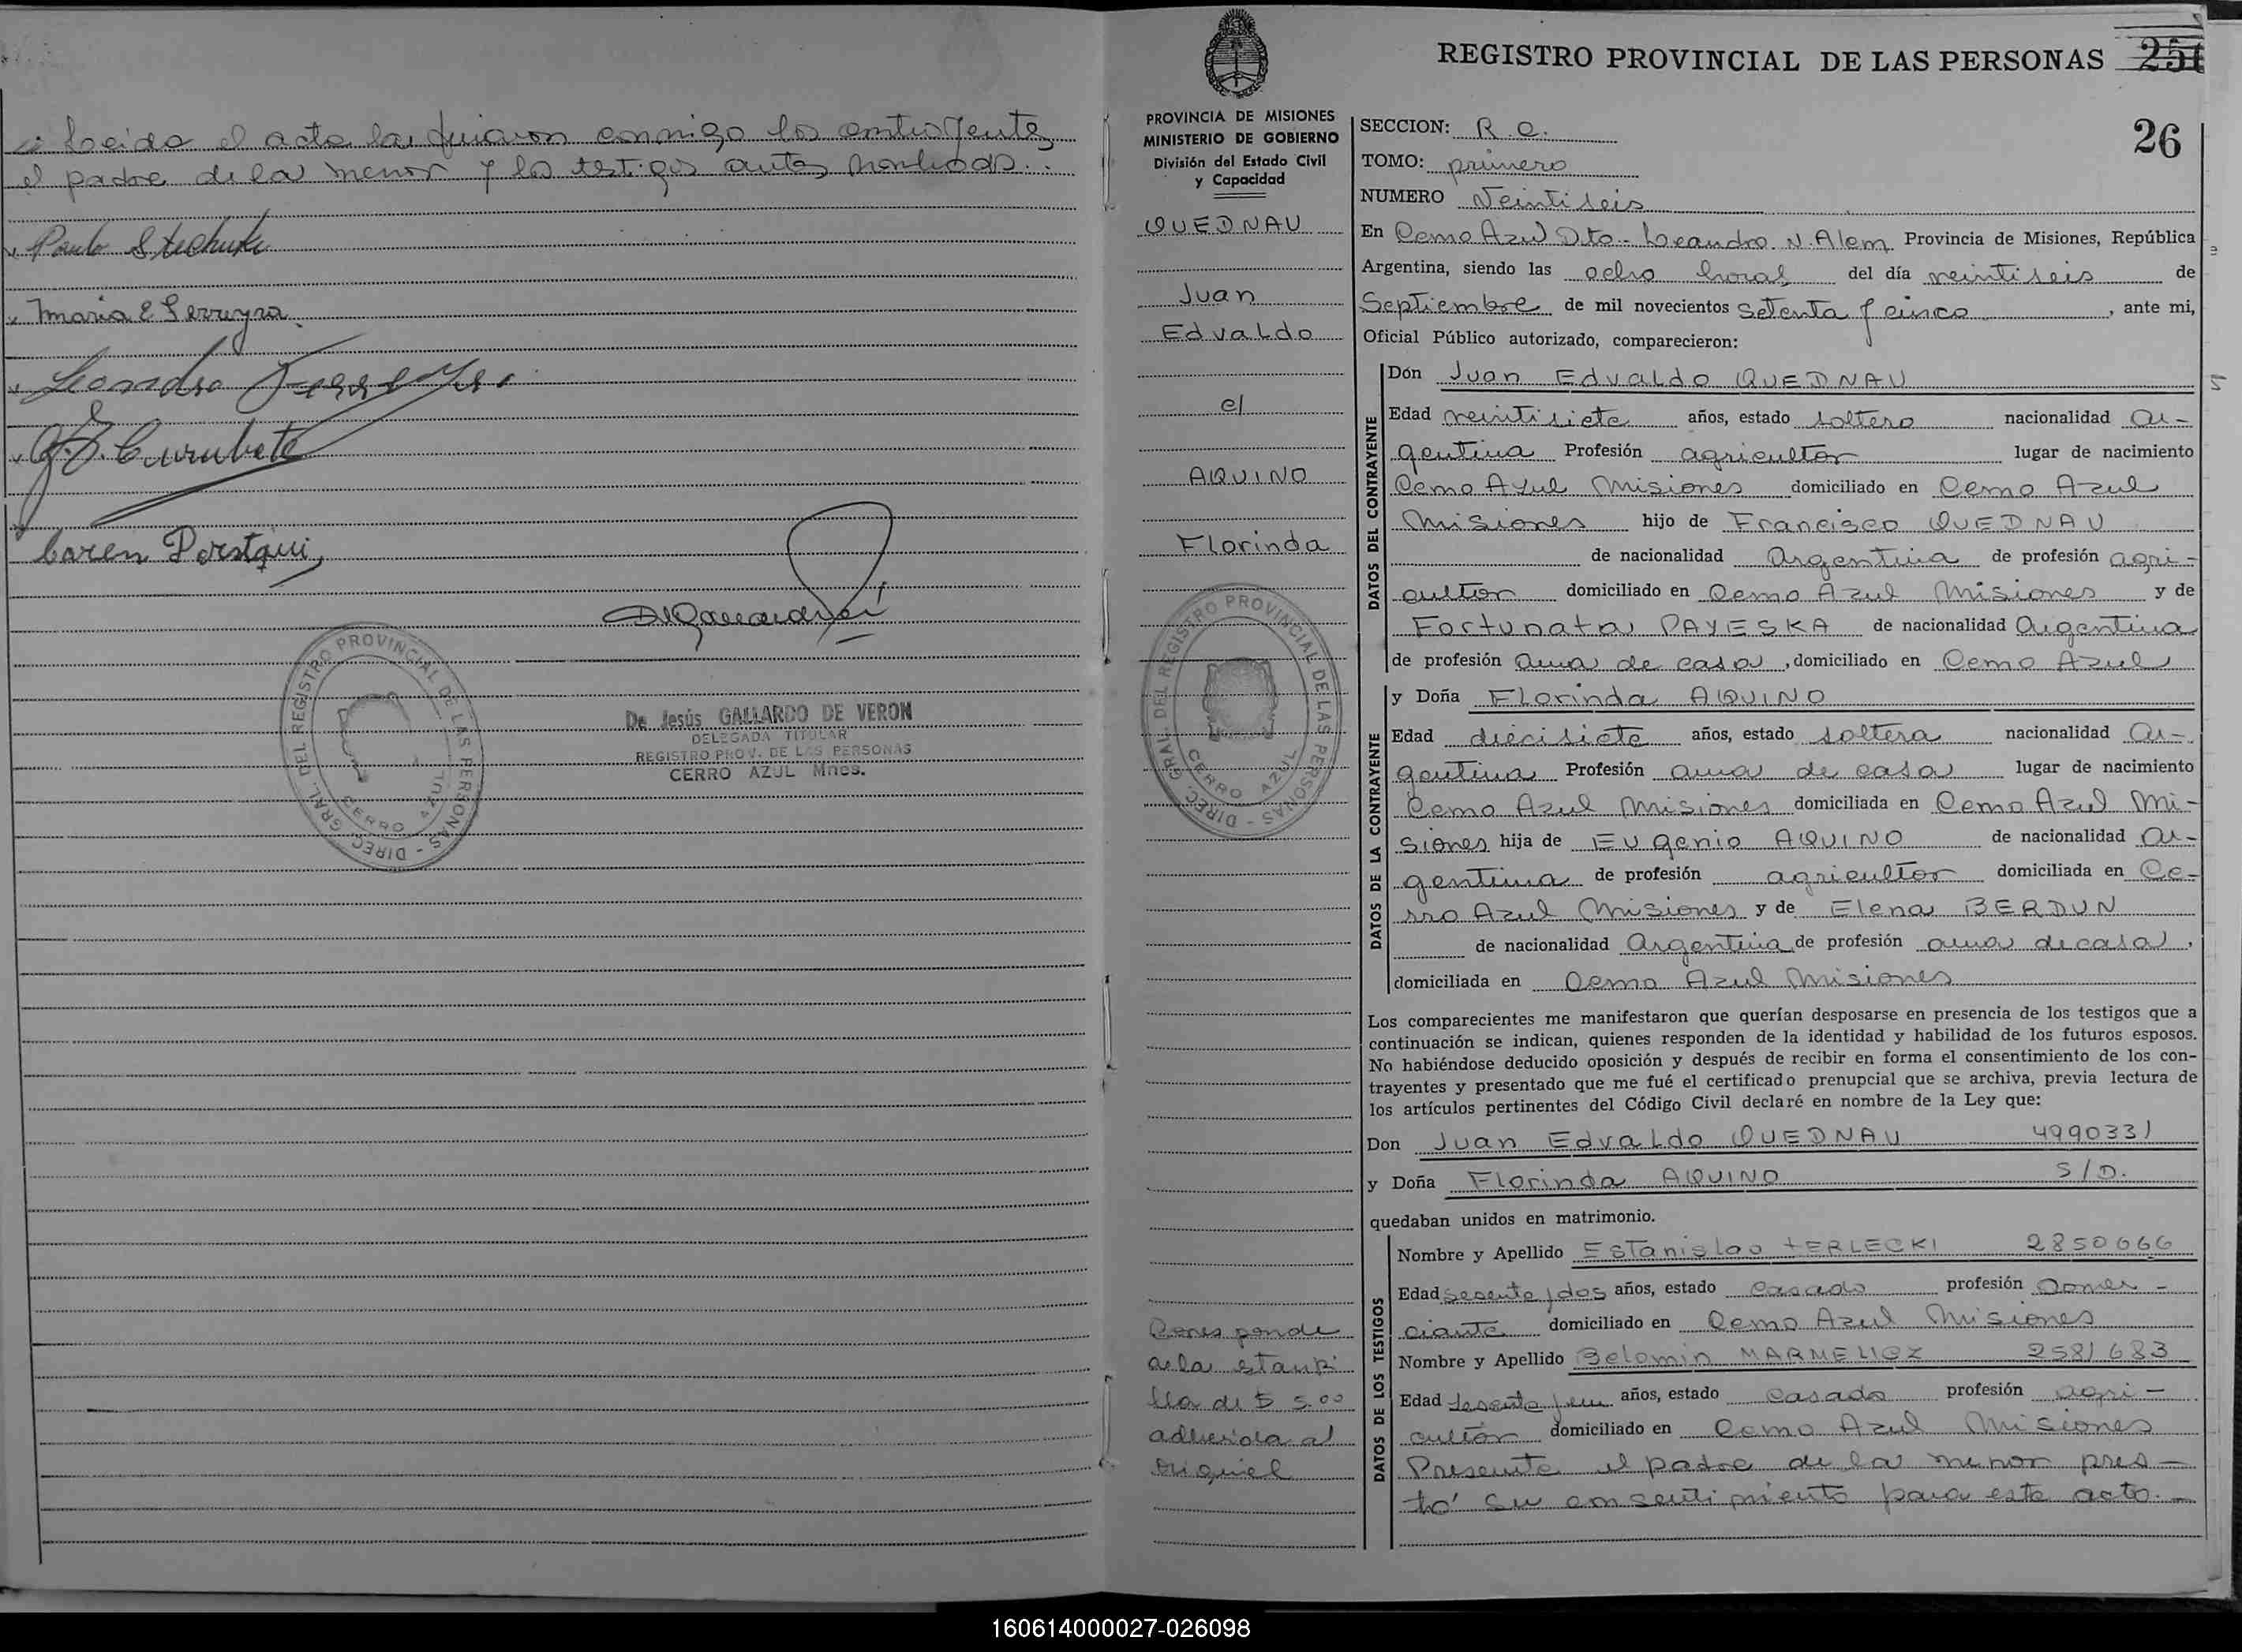 Leida el acta la firmaron conmigo los contrayentes
el padre de la menor y los testigos antes nombrados.
Paulo Stechuk
Maria E Ferreyra
Leandro Ferreyra
Caren Perstqui
De Jesús GALLARDO DE VERON
DELEGADA TITULAR
REGISTRO PROV. DE LAS PERSONAS
CERRO AZUL Mnes.
DIREC. GRAL. DEL REGISTRO PROVINCIAL DE LAS PERSONAS -
CERRO AZUL
REGISTRO PROVINCIAL DE LAS PERSONAS 251
PROVINCIA DE MISIONES
MINISTERIO DE GOBIERNO
División del Estado Civil
y Capacidad
QUEDNAU
Juan
Edvaldo
e/
AQUINO
Florinda
DIREC. GRAL. DEL REGISTRO PROVINCIAL DE LAS PERSONAS -
CERRO AZUL
Corresponde
a la estampi
lla de $ 5.00
adherida al
original
26
SECCION: R.C.
TOMO: primero
NUMERO Veintiseis
En Cerro Azul Dto. Leandro N. Alem Provincia de Misiones, República
Argentina, siendo las ocho horas del día veintiseis de
Septiembre de mil novecientos setenta y cinco, ante mi,
Oficial Público autorizado, comparecieron:
DATOS DEL CONTRAYENTE
Don Juan Edvaldo QUEDNAU
Edad veintisiete años, estado soltero nacionalidad Ar-
gentina Profesión agricultor lugar de nacimiento
Cerro Azul Misiones domiciliado en Cerro Azul
Misiones hijo de Francisco QUEDNAU
de nacionalidad Argentina de profesión agri-
cultor domiciliado en Cerro Azul Misiones y de
Fortunata PAYESKA de nacionalidad Argentina
de profesión ama de casa, domiciliado en Cerro Azul
DATOS DE LA CONTRAYENTE
y Doña Florinda AQUINO
Edad diecisiete años, estado soltera nacionalidad Ar-
gentina Profesión ama de casa lugar de nacimiento
Cerro Azul Misiones domiciliada en Cerro Azul Mi-
siones hija de Eugenio AQUINO de nacionalidad Ar-
gentina de profesión agricultor domiciliada en Ce-
rro Azul Misiones y de Elena BERDUN
de nacionalidad Argentina de profesión ama de casa,
domiciliada en Cerro Azul Misiones
Los comparecientes me manifestaron que querían desposarse en presencia de los testigos que a
continuación se indican, quienes responden de la identidad y habilidad de los futuros esposos.
No habiéndose deducido oposición y después de recibir en forma el consentimiento de los con-
trayentes y presentado que me fué el certificado prenupcial que se archiva, previa lectura de
los artículos pertinentes del Código Civil declaré en nombre de la Ley que:
Don Juan Edvaldo QUEDNAU 4990331
y Doña Florinda AQUINO S/D.
quedaban unidos en matrimonio.
DATOS DE LOS TESTIGOS
Nombre y Apellido Estanislao TERLECKI 2850666
Edad sesenta y dos años, estado casado profesión Comer-
ciante domiciliado en Cerro Azul Misiones
Nombre y Apellido Belarmin 2581683
Edad sesenta y un años, estado casado profesión agri-
cultor domiciliado en Cerro Azul Misiones
Presente el padre de la menor pres-
tó su consentimiento para este acto.-
160614000027-026098